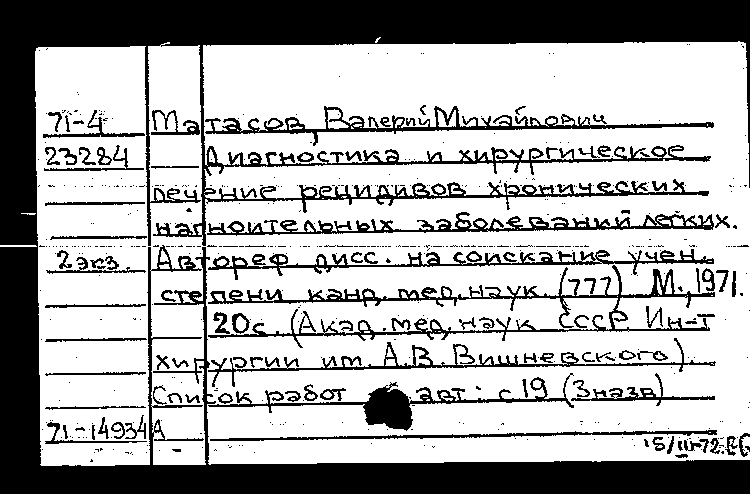 71-4 Матасов, Валерий Михайлович
23284 Диагностика и хирургическое
лечение рецидивов хронических
нагноительных заболеваний легких.
2 экз. Автореф. дисс. на соискание учен.
степени канд. мед. наук. (777) М., 1971.
20с. (Акад. мед. наук СССР Ин-т
хирургии им. А.В. Вишневского).
Список работ авт: с 19 (3 назв)
71-14934А
15/III-72.